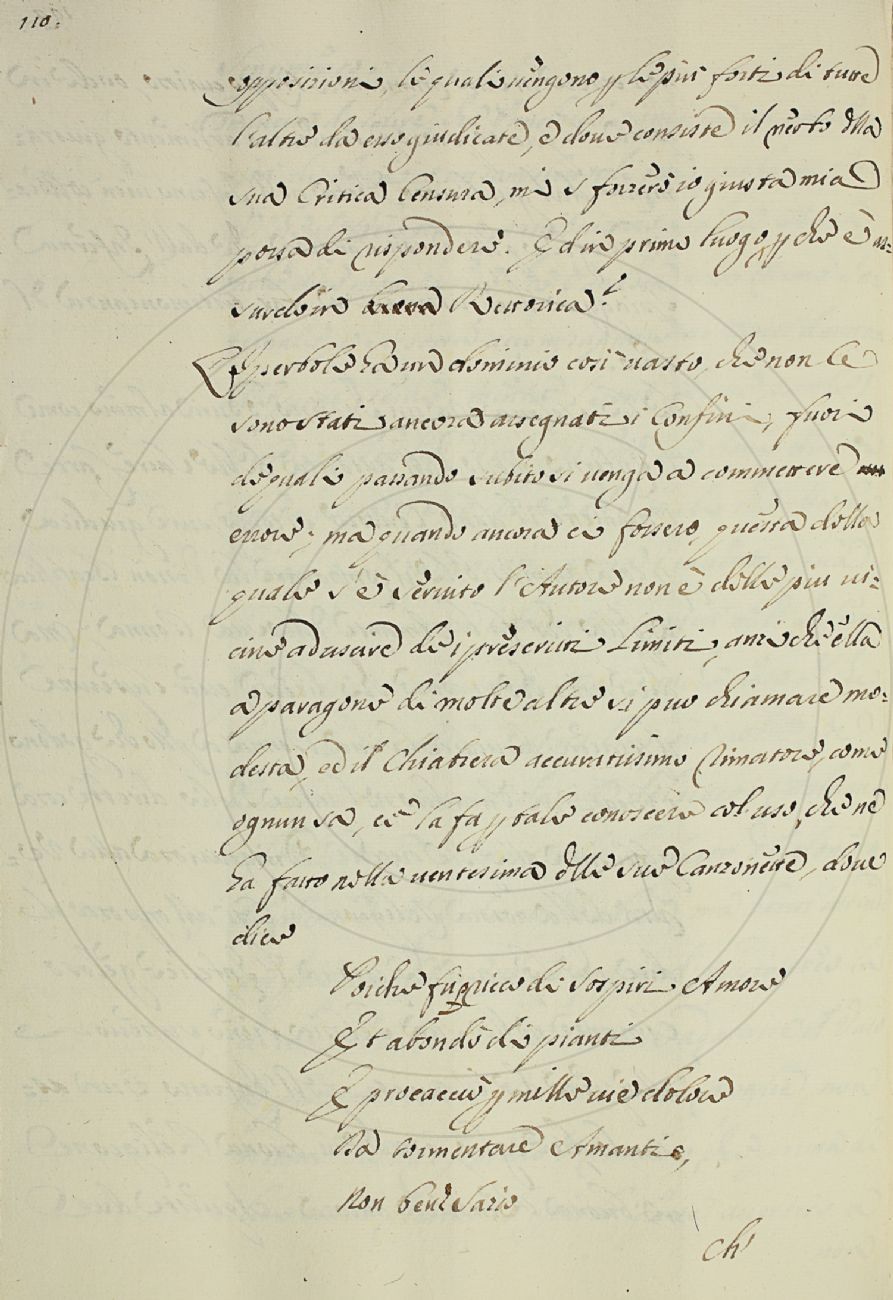 110.
opposizioni, le quali vengono p le più forti di tutte
l'altre da esso giudicate, e dove consiste il nerbo dlla
sua Critica Censura, mi sforzerò io giusta mia
possa di rispondere. E di in primo luogo, p che è as=
surdo in Rettorica?
L'Iperbole ha un dominio così vasto, che non le
sono stati ancora assegnati i Confini, fuori
de quali passando subito si venga a commettere
errore; ma quando ancora ci fossero, questa della
quale s'è servito l'Autore non è delle piu vi=
cine ad uscire de i prescritti Limiti, anzi che ella
a paragone di molte altre si puo chiamare mo=
desta, ed il Chiabrera accuratissimo Rimatore, come
ognun sa, ce la fa p tale conoscere col uso, che ne
ha fatto nella ventesima dlle sue Canzonette, dove
dice
Poiche fù ricco di Sospiri Amore
Et abondò di pianti
E procacciò p mille vie dolore
Da tormentare Amanti,
Non ben Sazio
Ch'